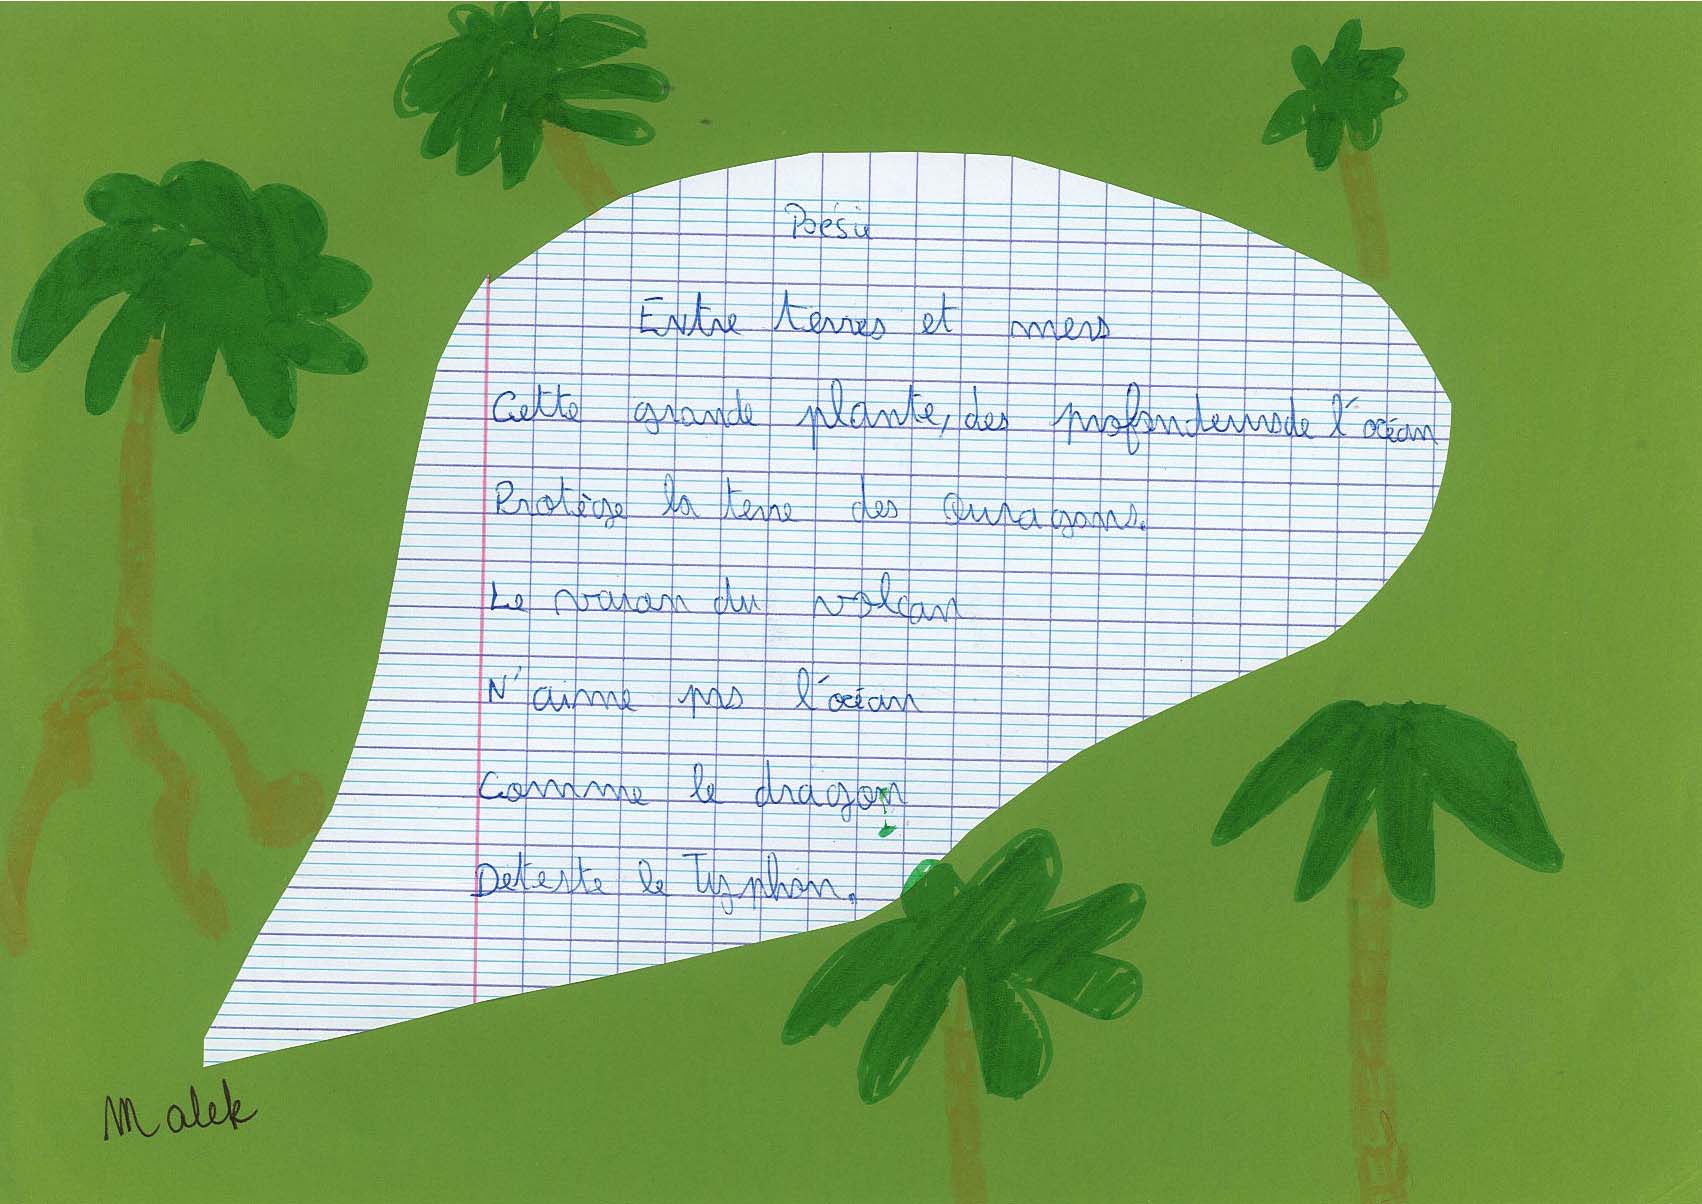 Poésie
Entre terres et mers
Cette grande plante, des profondeurs de l'océan
Protège la terre des ouragans.
Le varan du volcan
N'aime pas l'océan
Comme le dragon
Déteste le Typhon.
Malek